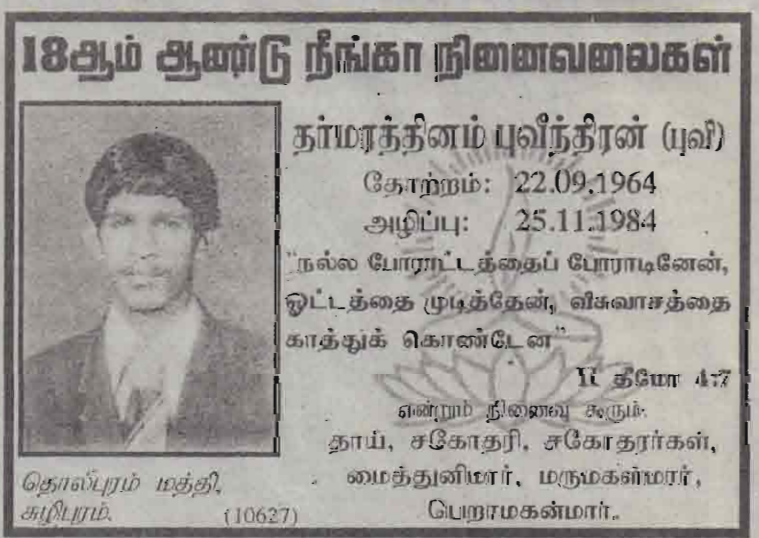 18ஆம் ஆண்டு நீங்கா நினைவலைகள்
தர்மரத்தினம் புவீந்திரன் (புவி)
தோற்றம்: 22.09.1964
அழிப்பு: 25.11.1984
"நல்ல போராட்டத்தைப் போராடினேன்,
ஓட்டத்தை முடித்தேன், விசுவாசத்தை
காத்துக் கொண்டேன"
II தீமோ 4:7
என்றும் நினைவு கூரும்.
தாய், சகோதரி, சகோதரர்கள்,
மைத்துனிமார், மருமகள்மார்,
பெறாமகன்மார்.
தொல்புரம் மத்தி,
சுழிபுரம். (10627)